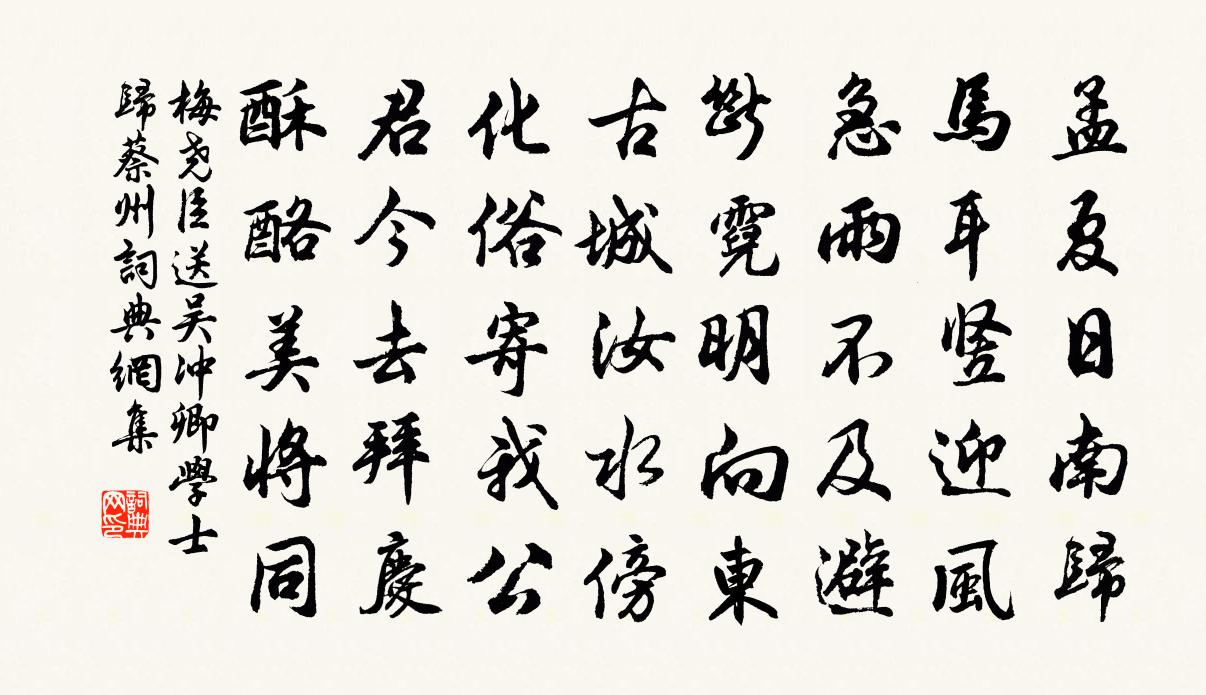 孟夏日南歸
馬耳豎迎風
急雨不及避
斷霓明向東
古城汝水傍
化俗寄我公
君今去拜慶
酥酪美將同
梅尧臣送吴冲卿學士
歸蔡州詞典網集
詞典网印